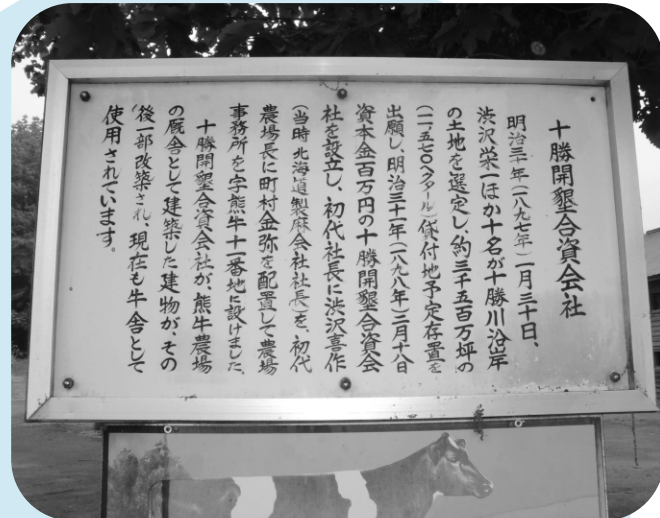 十勝開墾合資会社
明治三十年(一八九七年)一月三十日、
渋沢栄一ほか十名が十勝川沿岸
の土地を選定し、約三千五百万坪の
(一一、五七〇ヘクタール)貸付地予定存置を
出願し、明治三十一年(一八九八年)二月十八日
資本金百万円の十勝開墾合資会
社を設立し、初代社長に渋沢喜作
(当時 北海道製麻会社社長)を、初代
農場長に町村金弥を配置して農場
事務所を字熊牛十一番地に設けました。
十勝開墾合資会社が、熊牛農場
の厩舎として建築した建物が、その
後一部改築され、現在も牛舎として
使用されています。